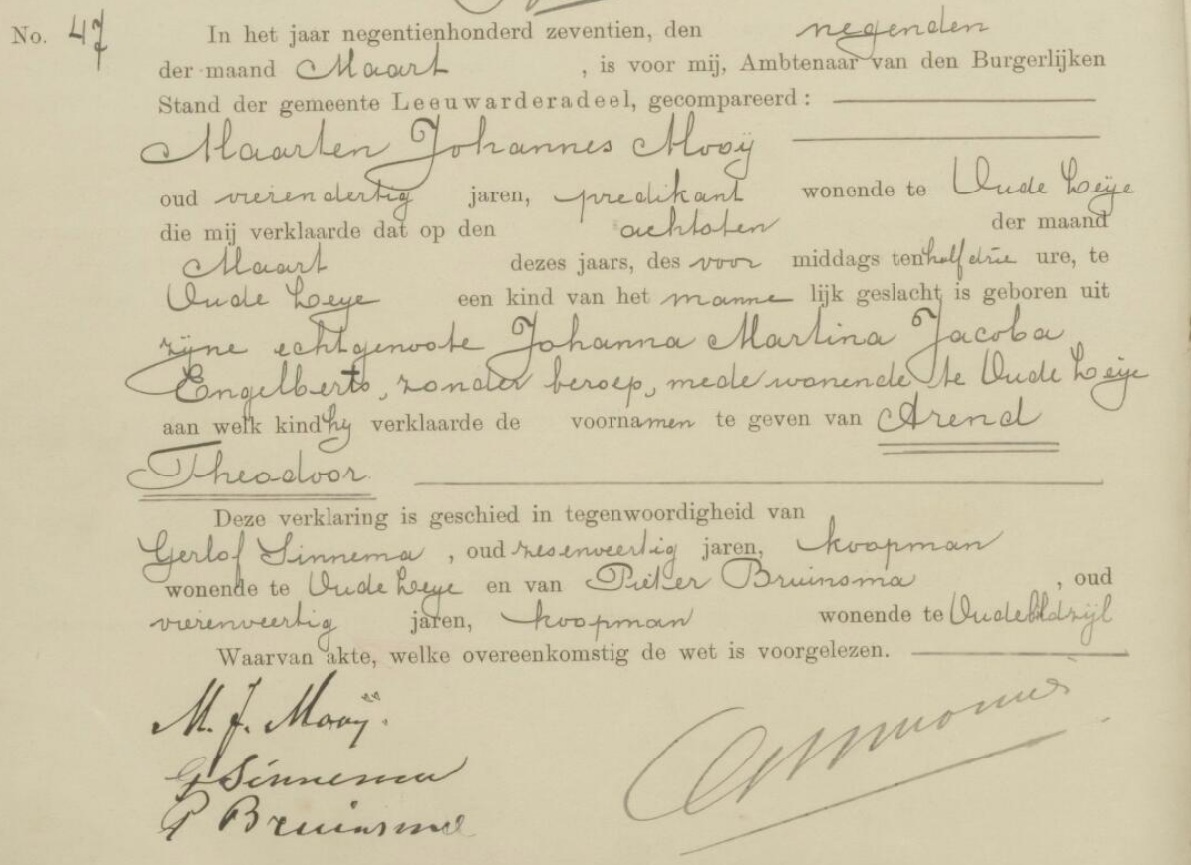 No. 47 In het jaar negentienhonderd zeventien, den negenden
der maand Maart , is voor mij, Ambtenaar van den Burgerlijken
Stand der gemeente Leeuwarderadeel, gecompareerd :
Maarten Johannes Mooij
oud vierendertig jaren, predikant wonende te Oude Leije
die mij verklaarde dat op den achtsten der maand
Maart dezes jaars, des voor middags ten half drie ure, te
Oude Leye een kind van het manne lijk geslacht is geboren uit
zijne echtgenoote Johanna Martina Jacoba
Engelberts, zonder beroep, mede wonende te Oude Leije
aan welk kind hy verklaarde de voornamen te geven van Arend
Theodoor.
Deze verklaring is geschied in tegenwoordigheid van
Gerlof Sinnema , oud zesenveertig jaren, koopman
wonende te Oude Leye en van Pieter Bruinsma , oud
vierenveertig jaren, koopman wonende te Oudebildzijl
Waarvan akte, welke overeenkomstig de wet is voorgelezen.
M. J. Mooij.
G Sinnema
P Bruinsma